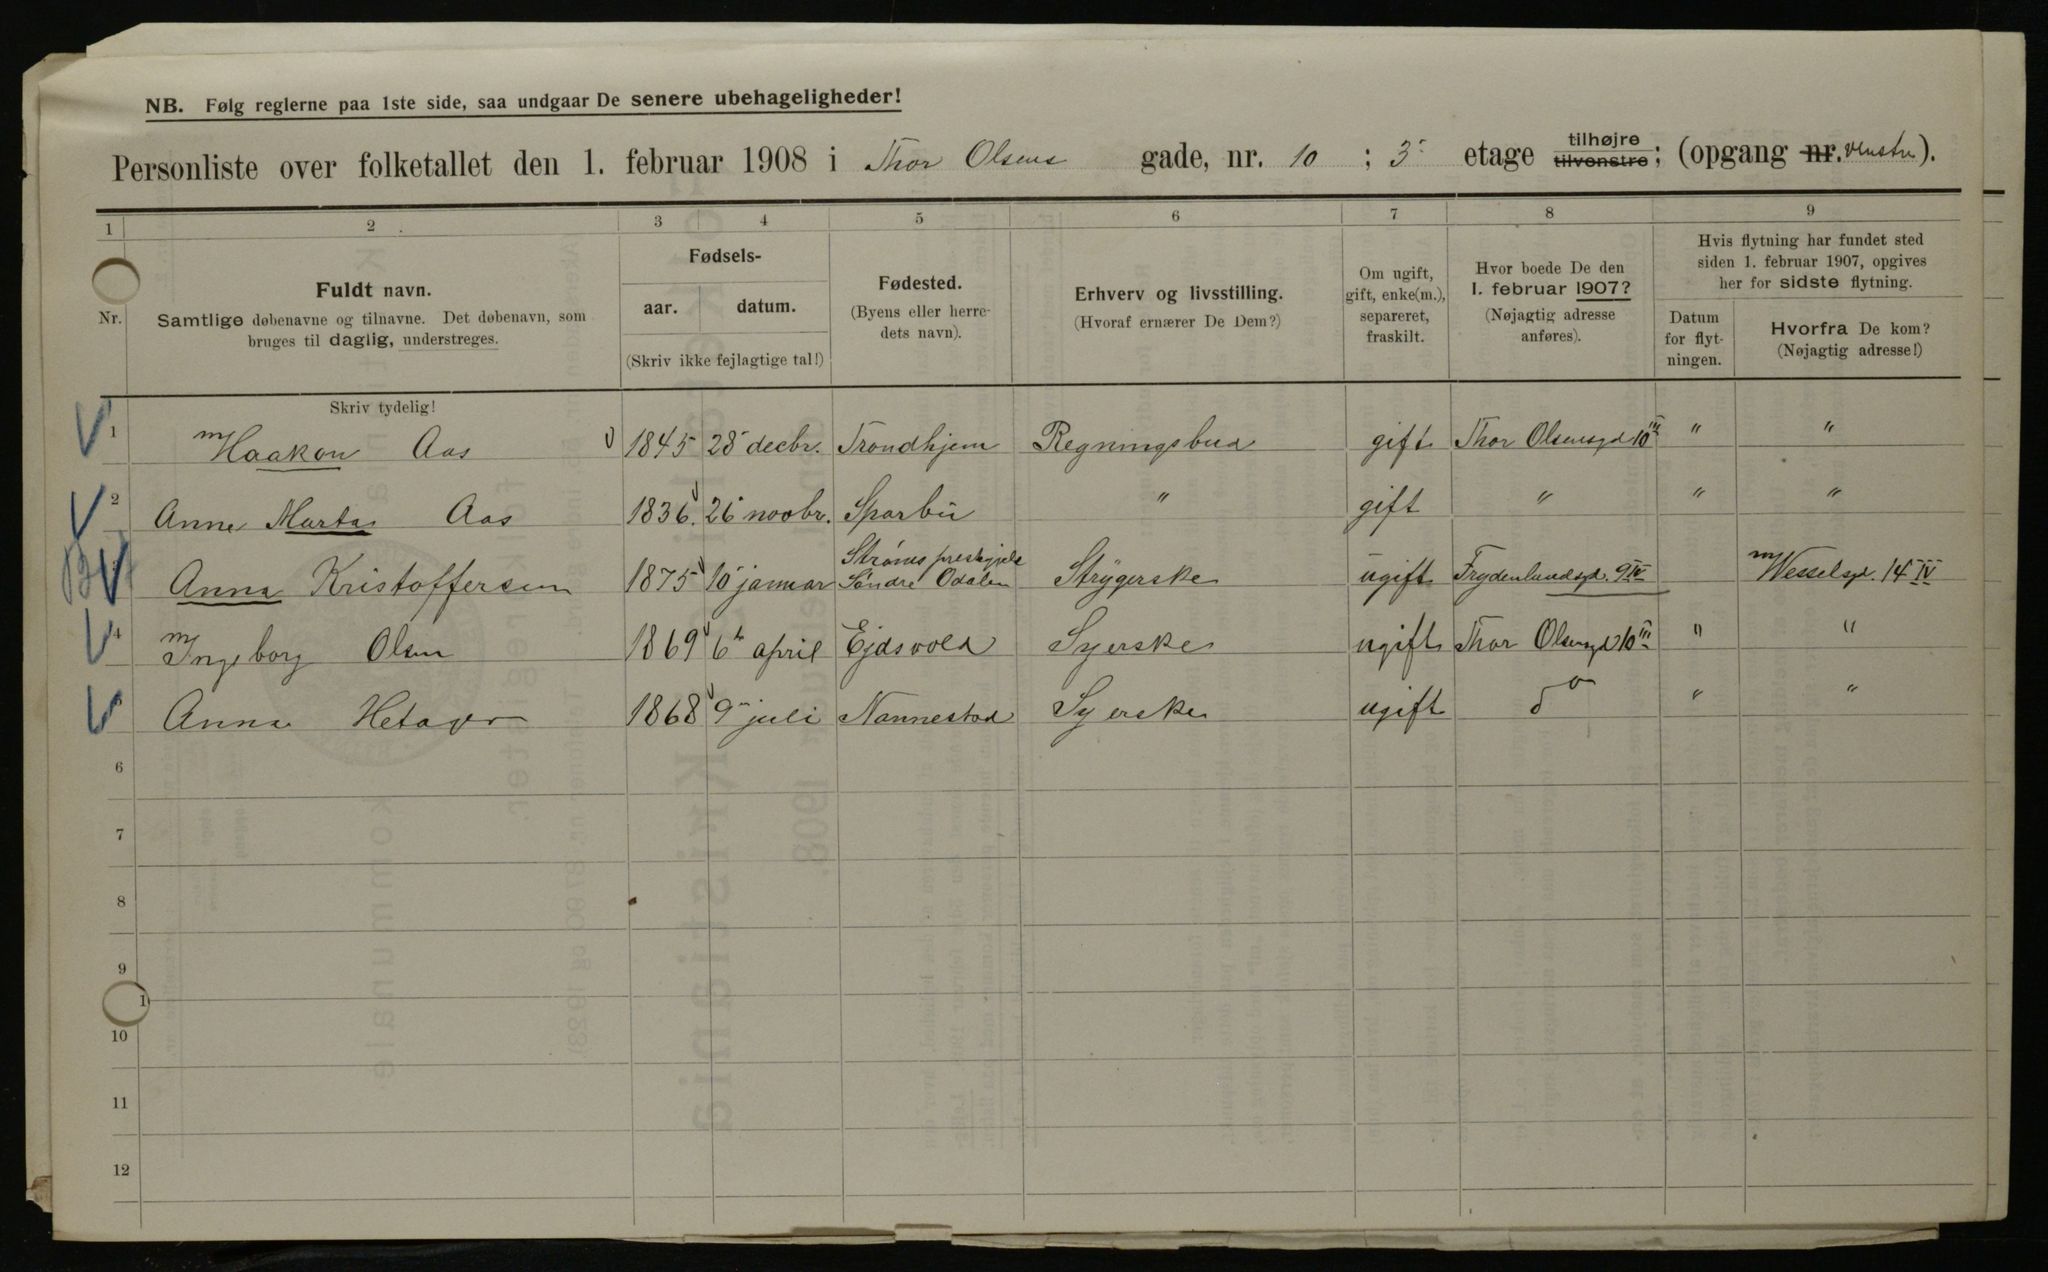 NB. Følg reglerne paa 1ste side, saa undgaar De senere ubehageligheder!
Personliste over folketallet den 1. februar 1908 i Thor Olsens gade, nr. 10 ; 3 etage tilhøjre tilvenstre; (opgang nr. venstre).
1 2 3 4 5 6 7 8 9
Nr.
Fuldt navn.
Samtlige døbenavne og tilnavne. Det døbenavn, som
bruges til daglig, understreges.
Skriv tydelig!
Fødsels-
aar. datum.
(Skriv ikke fejlagtige tal!)
Fødested.
(Byens eller herre-
dets navn).
Erhverv og livsstilling.
(Hvoraf ernærer De Dem?)
Om ugift,
gift, enke(m.),
separeret,
fraskilt.
Hvor boede De den
1. februar 1907?
(Nøjagtig adresse
anføres).
Hvis flytning har fundet sted
siden 1. februar 1907, opgives
her for sidste flytning.
Datum
for flyt-
ningen.
Hvorfra De kom?
(Nøjagtig adresse!)
1 Haakon Aas 1845 28 decbr. Trondhjem Regningsbud gift Thor Olsensgd 10 III " "
2 Anne Marta Aas 1836. 26 novbr. Sparbu " gift " " "
Anna Kristoffersen 1875 10 januar Strøms prestegjeld Søndre Odalen Strygerske ugift Frydenlundsgd. 9 IV Wesselsgd. 14 IV
4 Ingeborg Olsen 1869 6 april Ejdsvold Syerske ugift Thor Olsensgd 10 III " "
Anna Hetager 1868 9 juli Nannestad Syerske ugift do " "
6
7
8
9
1
10
11
12